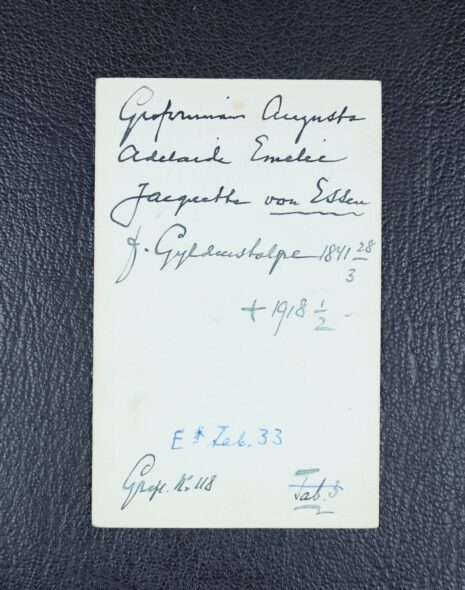 Grefvinnan Augusta
Adelaide Emelie
Jacquette von Essen
f. Gyldenstolpe 1841 28/3
+ 1918 1/2 -
E* Tab. 33
Gref. No 118
Tab. 8